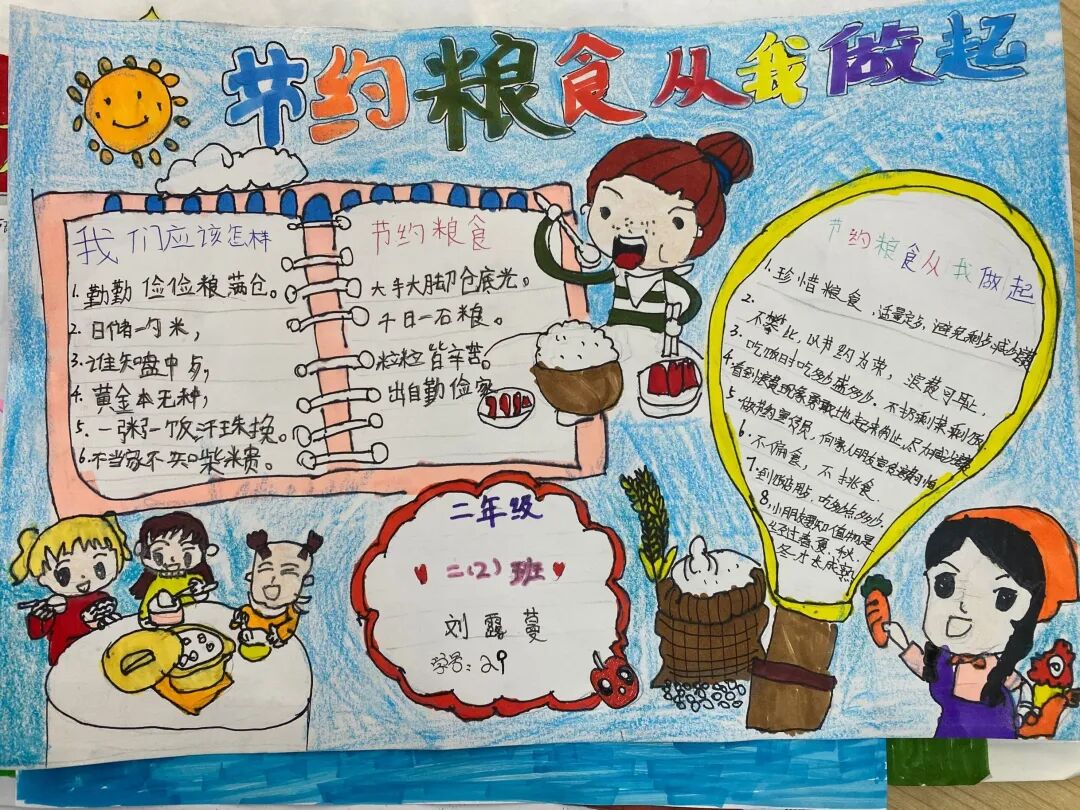 节约粮食从我做起
我们应该怎样
1.勤勤俭俭粮满仓。
2.日储一勺米,
3.谁知盘中
4.黄金本无种,
5.一粥一饭汗珠换。
6.不当家不知柴米贵。
节约粮食
大手大脚仓底光。
千日一石粮。
粒粒皆辛苦。
出自勤俭家
节约粮食从我做起
1.珍惜粮食,适量定,避免剩减少浪费
2.不攀比,以节约为荣,浪费可耻,
3.吃饭时吃多少盛多少,不扔剩菜剩饭
4.看到浪费现象勇敢地起来制止,尽力减少浪费
5.做节约宣传员,向家人朋友宣传浪费
6.不偏食,不挑食.
7.到饭店用,吃多少点多少,
8.小朋友要知植物是
经过春夏,秋,
冬才长成熟
二年级
二(2)班
刘露蔓
学号:29